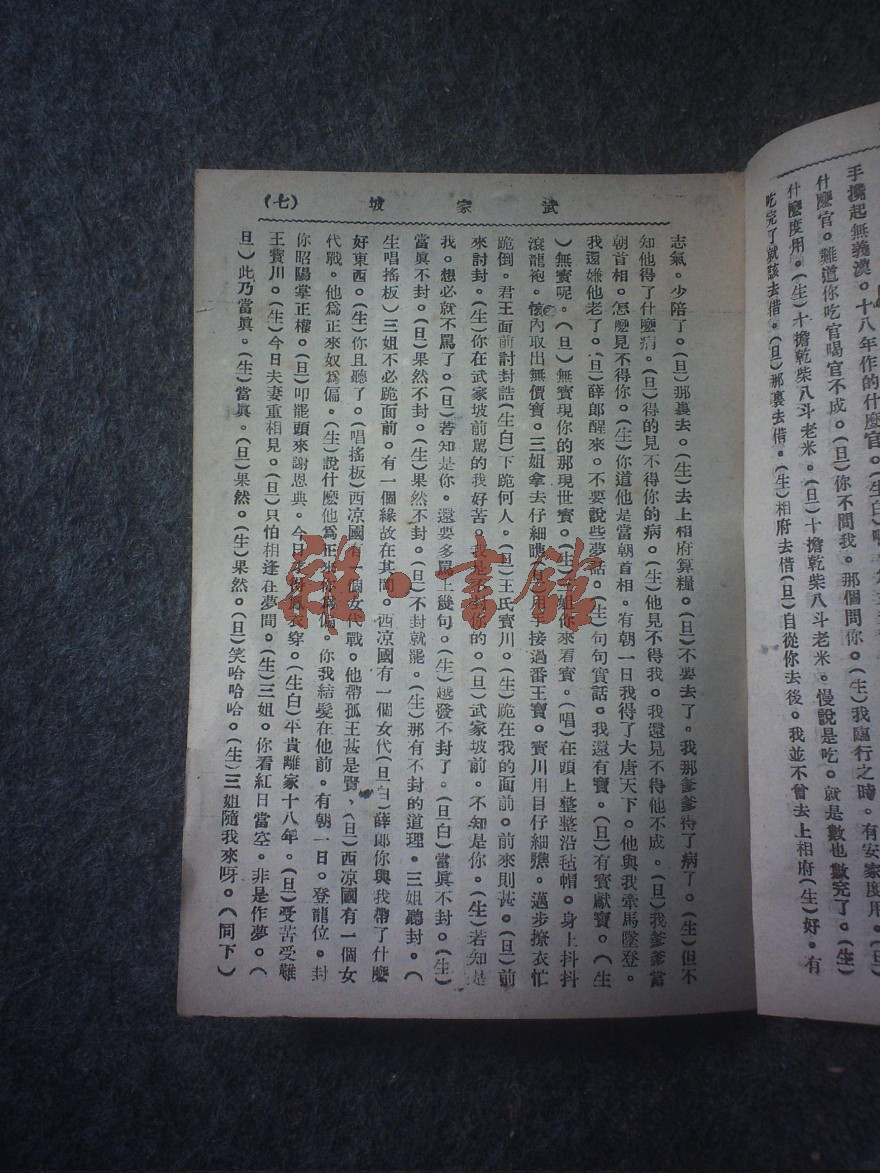 手攙起無義漢。十八年作的什麼官。(生白)
什麼官。難道你吃官喝官不成。(旦)你不問我。那個問你。(生)我臨行之時。有安家度用。(旦)
什麼度用。(生)十擔乾柴八斗老米。(旦)十擔乾柴八斗老米。慢說是吃。就是數也數完了。(生)
吃完了就該去借。(旦)那裏去借。(生)相府去借(旦)自從你去後。我並不曾去上相府(生)好。有
武家坡 (七)
志氣。少陪了。(旦)那裏去。(生)去上相府算糧。(旦)不要去了。我那爹爹得了病了。(生)但不
知他得了什麼病。(旦)得的見不得你的病。(生)他見不得我。我還見不得他不成。(旦)我爹爹當
朝首相。怎麼見不得你。(生)你道他是當朝首相。有朝一日我得了大唐天下。他與我牽馬墜登。
我還嫌他老了。(旦)薛郎醒來。不要說些夢話。(生)句句實話。我還有寶。(旦)有寶獻寶。(生
)無寶呢。(旦)無寶現你的那現世寶。(生)三姐你來看寶。(唱)在頭上整整沿毡帽。身上抖抖
滾龍袍。懷內取出無價寶。三姐拿去仔細瞧(旦)用手接過番王寶。寶川用目仔細瞧。邁步撩衣忙
跪倒。君王面前討封誥(生白)下跪何人。(旦)王氏寶川。(生)跪在我的面前。前來則甚。(旦)前
來討封。(生)你在武家坡前罵的我好苦。我是不封你的。(旦)武家坡前。不知是你。(生)若知是
我。想必就不罵了。(旦)若知是你。還要多罵上幾句。(生)越發不封了。(旦白)當眞不封。(生)
當眞不封。(旦)果然不封。(生)果然不封。(旦)不封就罷。(生)那有不封的道理。三姐聽封。(
生唱搖板)三姐不必跪面前。有一個緣故在其間。西凉國有一個女代(旦白)薛郎你與我帶了什麼
好東西。(生)你且聽了。(唱搖板)西凉國有一個女代戰。他帶孤王甚是賢、(旦)西凉國有一個女
代戰。他爲正來奴爲偏。(生)說什麼他爲正來你爲偏。你我結髮在他前。有朝一日。登龍位。封
你昭陽掌正權。(旦)叩罷頭來謝恩典。今日穿。(生白)平貴離家十八年。(旦)受苦受難
王寶川。(生)今日夫妻重相見。(旦)只怕相逢在夢間。(生)三姐。你看紅日當空。非是作夢。(
旦)此乃當眞。(生)當眞。(旦)果然。(生)果然。(旦)笑哈哈哈。(生)三姐隨我來呀。(同下)
雜·書館